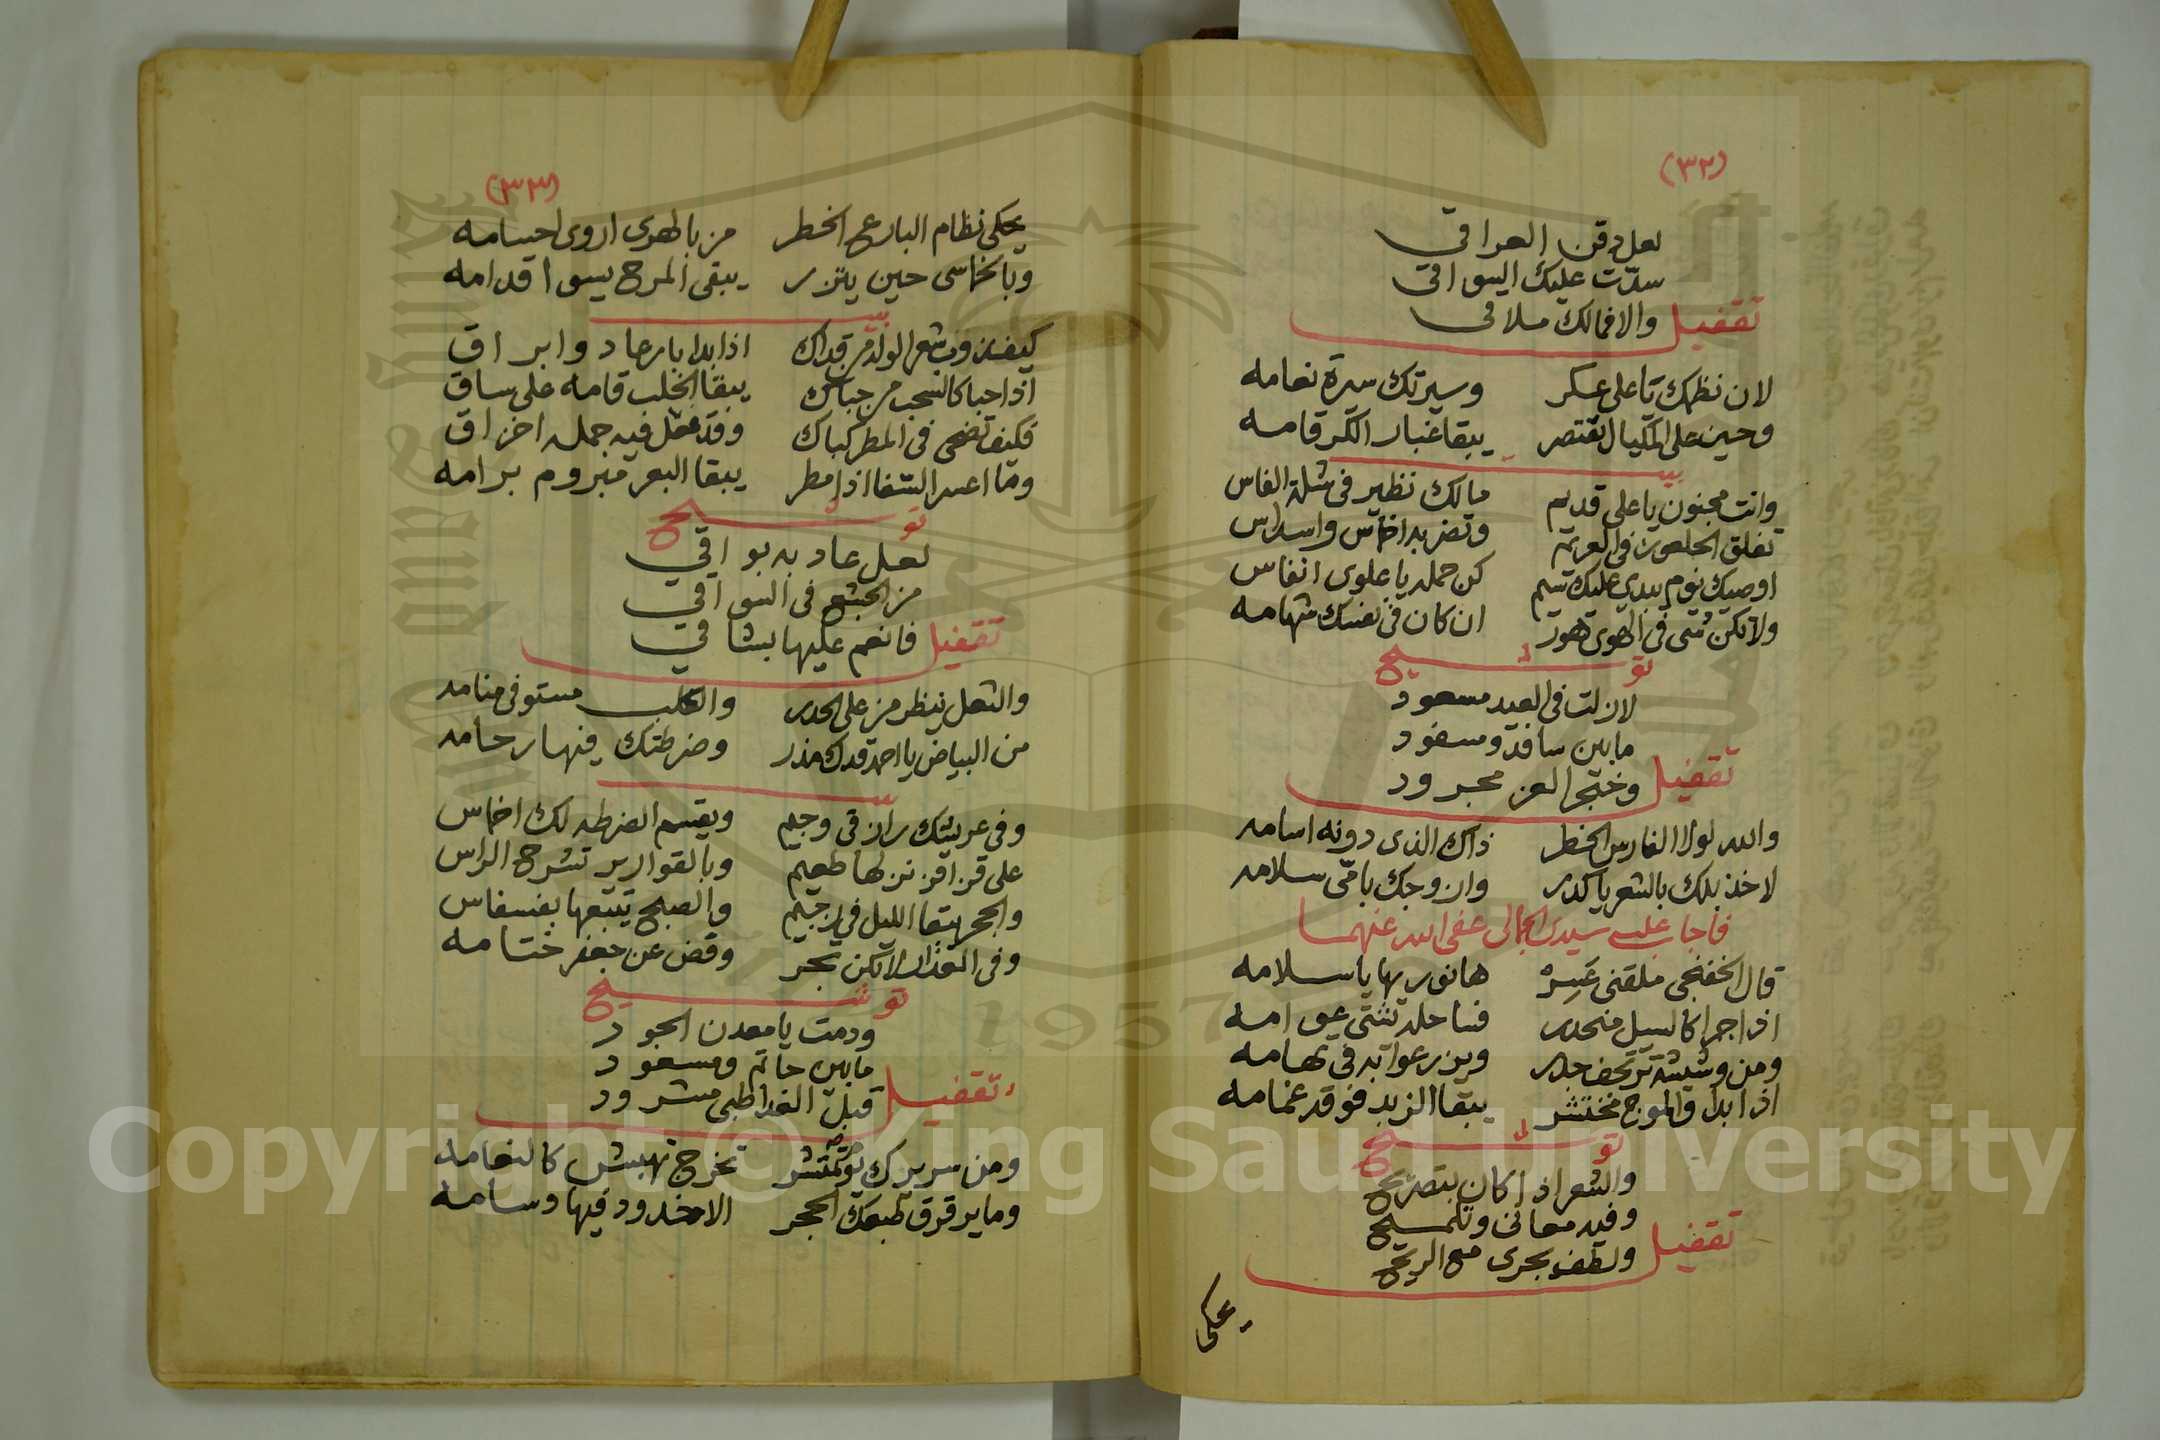 (٣٢)
لعل دقن العراقي
سدّت عليك السواقي
والا فمالك ملاقي
تقفيل
لان نظمك تا على عسكر وسيرتك سرة نعامه
وحين على المكيال تقتصر يبقا غبار الكر قامه
بيت
وانت مجنون يا على قديم مالك نظير في شلة الفاس
تفلق الحلعون في العريم وتضربه اخماس واسداس
اوصيك نوم يبدي عليك نسيم كن حمله يا علوي انفاس
ولا تكن شي في الهوى تهور ان كان في نفسك شهامه
توشيح
لازلت في العيد مسعود
مابين سافة ومسفود
وخنجر العز مجرود
تقفيل
والله لولا الفارس الخطر ذاك الذي دونه اسامه
لاخذ بلك بالشعر يا كدر وان وجك بامّي سلامه
فاجاب عليه سيدي الجمالي عفى الله عنهما
قال الخفنجي ملقني عَسِرْ هانوربها يا سلامه
اذا جرا كالسيل منحدر فساحله تشتي عوامه
ومن وشيشة ترتجف جدر وبن رعوا به في تهامه
اذا بدا والموج مختشر يبقا الزبد فوقه غمامه
توشيح
والشعر اذا كان بتصريح
وفيه معاني وتلميح
ولطف يجري مع الريح
تقفيل
يحكي
(٣٣)
يحكي نظام البارع الخطر من بالهوى اروى احسامه
وبالخماسي حين يتزر يبقى المرح يسوا قدامه
بيت
كيف وشعر الولد مرقداك اذا بدا بارعاد وابراق
اذا حبا كالسحب من حباك يبقا الخلب قامه على ساق
فكيف تضحي في المطر كباك وقد فعل فيه جمله اخزاق
وما اعسر الشفا اذا مطر يبقا البعر مبروم برامه
توشيح
لعل عاد به بواقي
من الجشع في السواقي
فانعم عليها بشاقي
تقفيل
والثعل ينظر من على الحدر والكلب مستوفي منامه
من البياض يا احمد قدك مذر وضرطتك فيها رحامه
بيت
وفي عريشك رازقي وجيم ويقسم الضرطه لك اخماس
على قرن اقرن نزلها طعيم وبالقوارير تشرح الراس
والحجر يبقا الليل في رجيم والصبح يتبعها بفسفاس
وفي الغدا لا تكن تجر وقض عن جعفر ختامه
توشيح
ودمت يا معدن الجود
مابين حاتم ومسعود
قبل الغدا طبي مشرود
تقفيل
ومن سريرك تنتشر تخرج تهبش كالنعامه
وما يرقرق طبعك الحجر الا خدود فيها وسامه